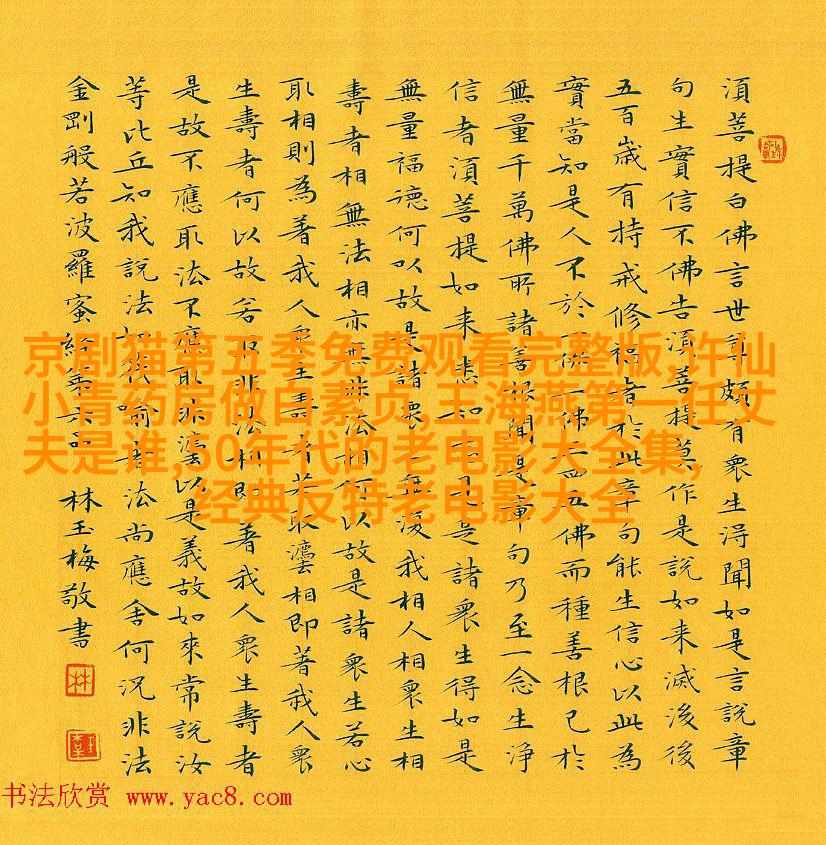 須菩提白佛言世尊頗有衆生得聞如是言說章
句生實信不佛告須菩提莫作是說如来滅後後
五百歲有持戒修福者於此章句能生信心以此為
實當知是人不於一佛二佛三四五佛而種善根已於
無量千萬佛所諸善根聞是章句乃至一念生淨
信者須菩提如来悉知悉見是諸衆生得如是
無量福德何以故是諸衆生無復我相人相衆生相
壽者相無法相亦無非法相何以故是諸衆生若心
取相則為著我人衆生壽者若取灋相即著我人衆
生壽者何以故若取非法相即著我人衆生壽者
是故不應取法不應取非灋以是義故如來常說汝
等比丘知我說法如筏喻者法尚應舍何況非法
金剛般若波羅蜜經第六品 林玉梅敬書
京剧猫第五季免费观看完整版,许仙
小青药房做白素贞,王海燕第一任丈
夫是谁,50年代的老电影大全集,
经典反特老电影大全
书法欣赏 www.yac8.com